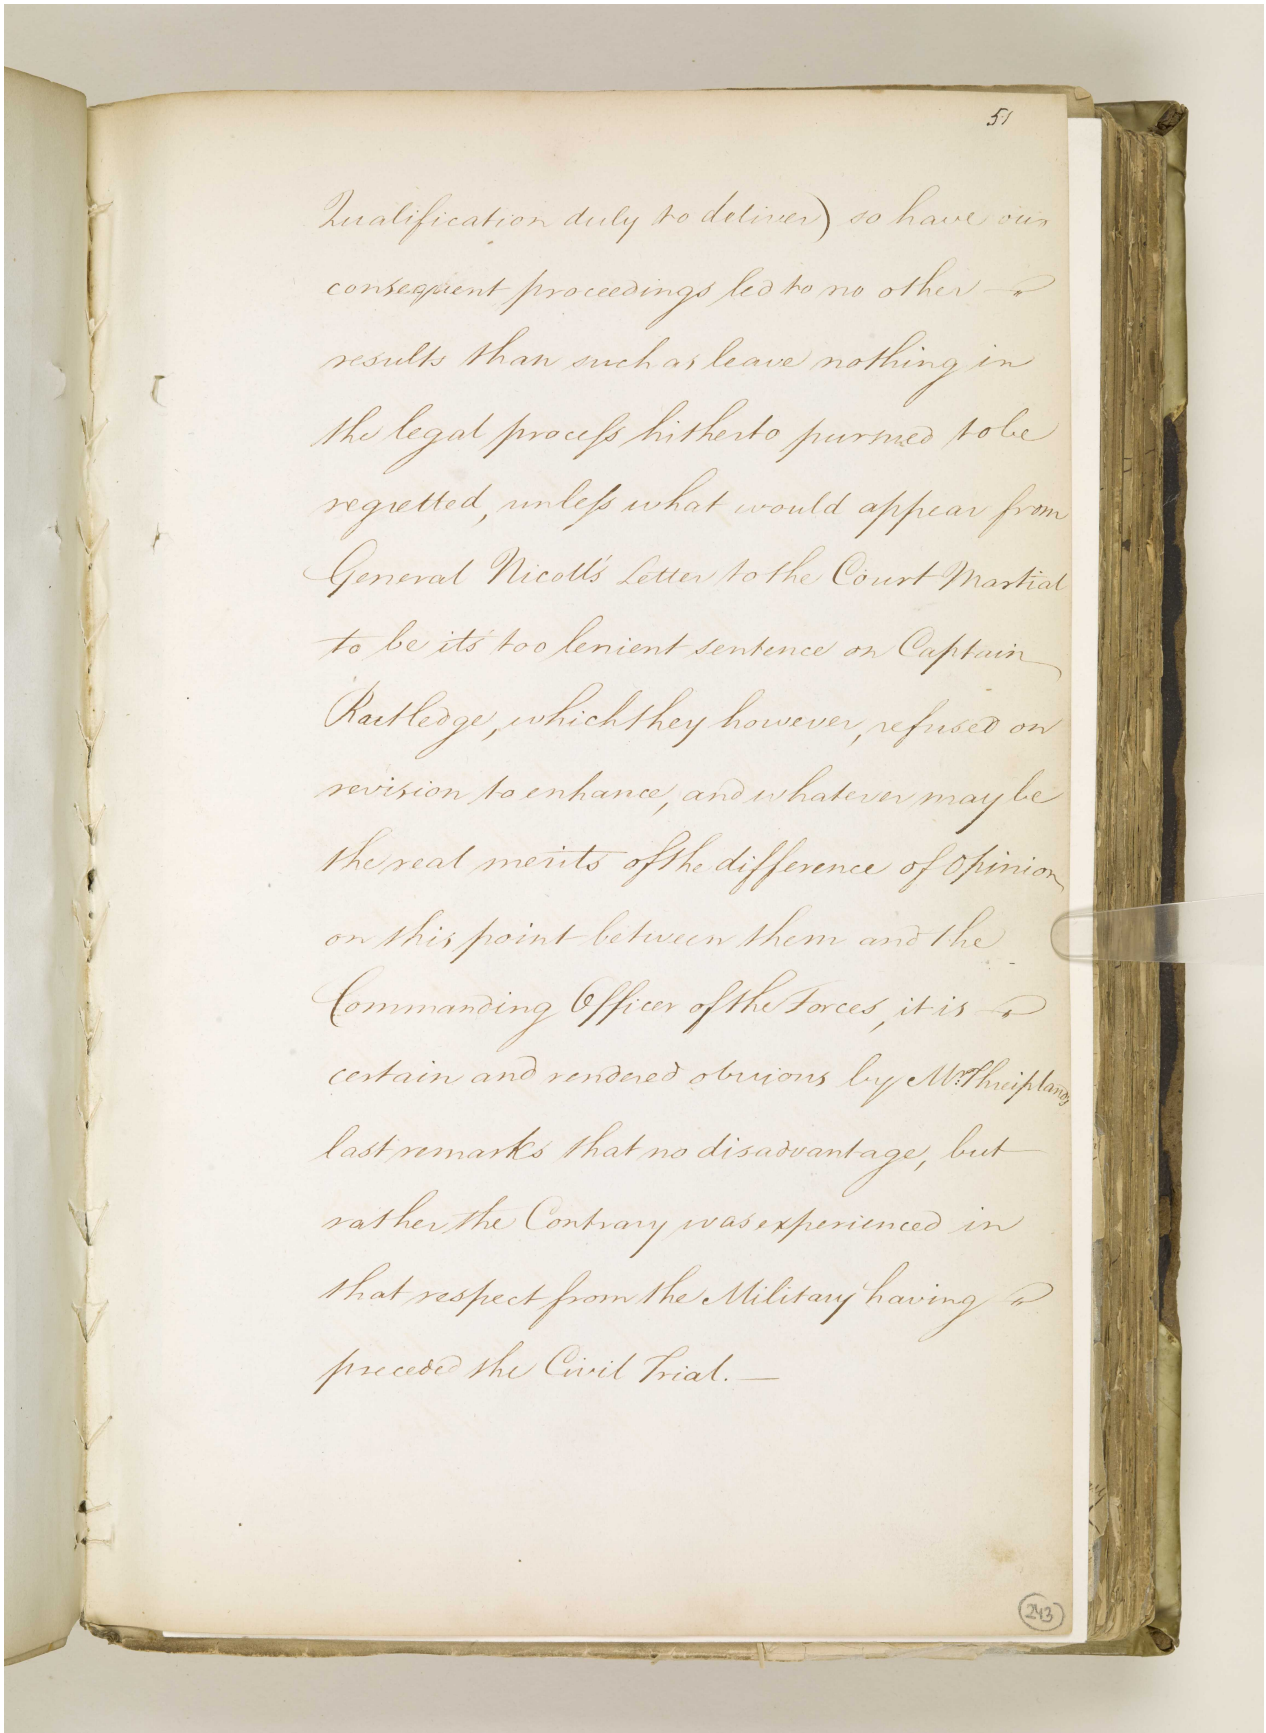 51
Qualification duly to deliver) so have our
consequent proceedings led to no other
results than such as leave nothing in
the legal process hitherto pursued to be
regretted, unless what would appear from
General Nicolls's Letter to the Court Martial
to be it's too lenient sentence on Captain
Rutledge, which they however, refused on
revision to enhance, and whatever may be
the real merits of the difference of Opinion
on this point between them and the
Commanding Officer of the Forces, it is
certain and rendered obvious by Mr. Threiplands
last remarks that no disadvantage, but
rather the Contrary was experienced in
that respect from the Military having
preceded the Civil Trial. —
243